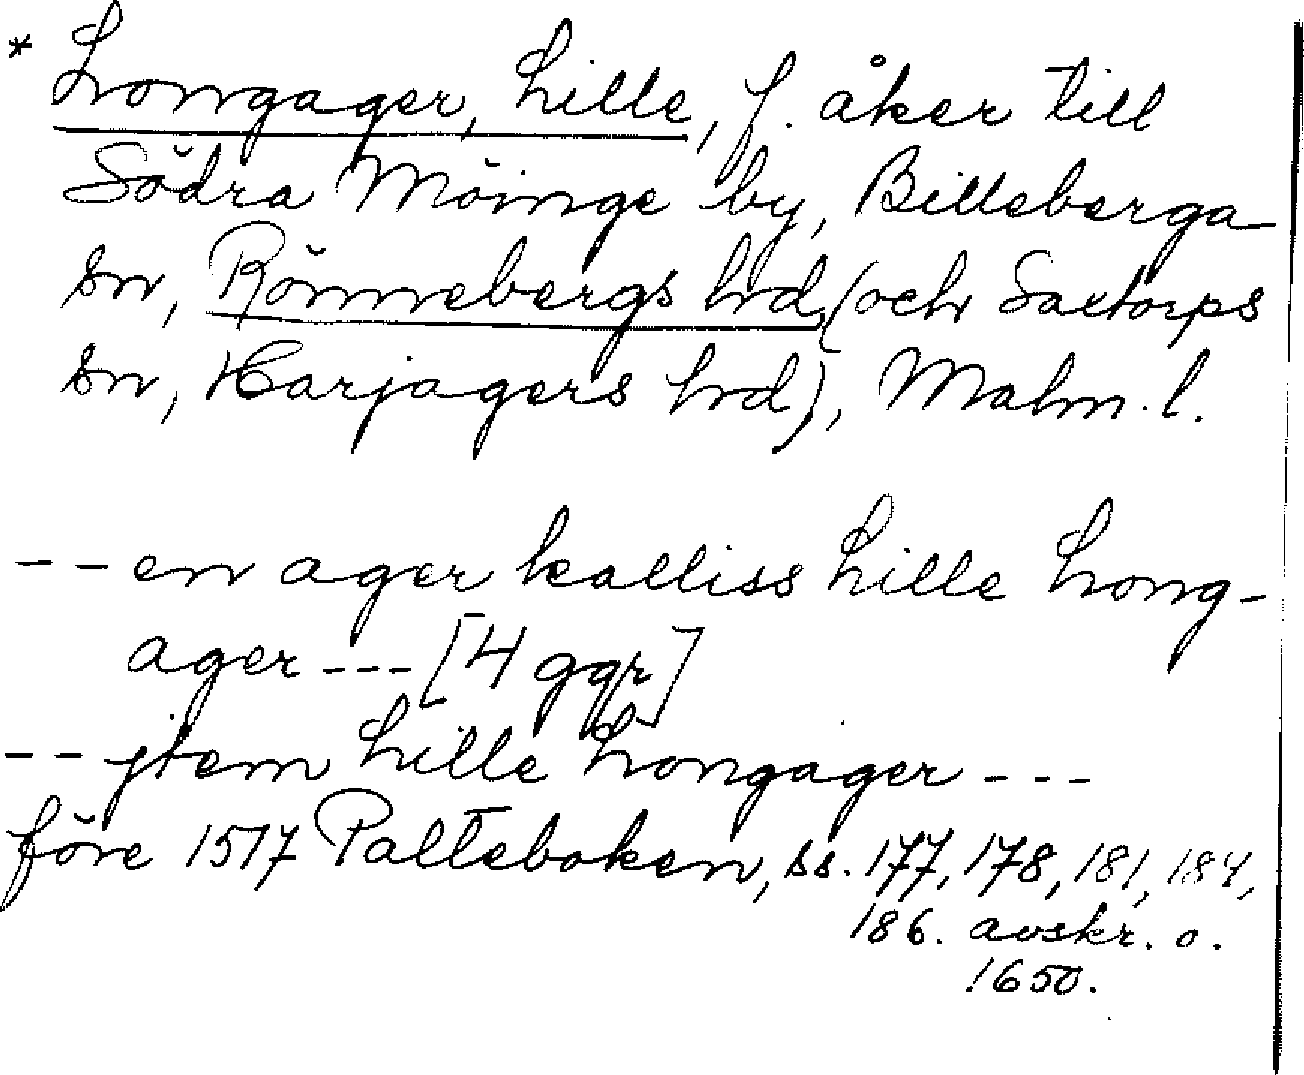 * Longager, Lille, f. åker till
Södra Möinge by, Billeberga
sn, Rönnebergs hrd (och Saxtorps
sn, Harjagers hrd), Malm. l.
-- en ager kalliss Lille Long-
ager --- [4 ggr]
-- jtem Lille Longager ---
före 1517 Palteboken, ss. 177, 178, 181, 184,
186. avskr. o.
1650.